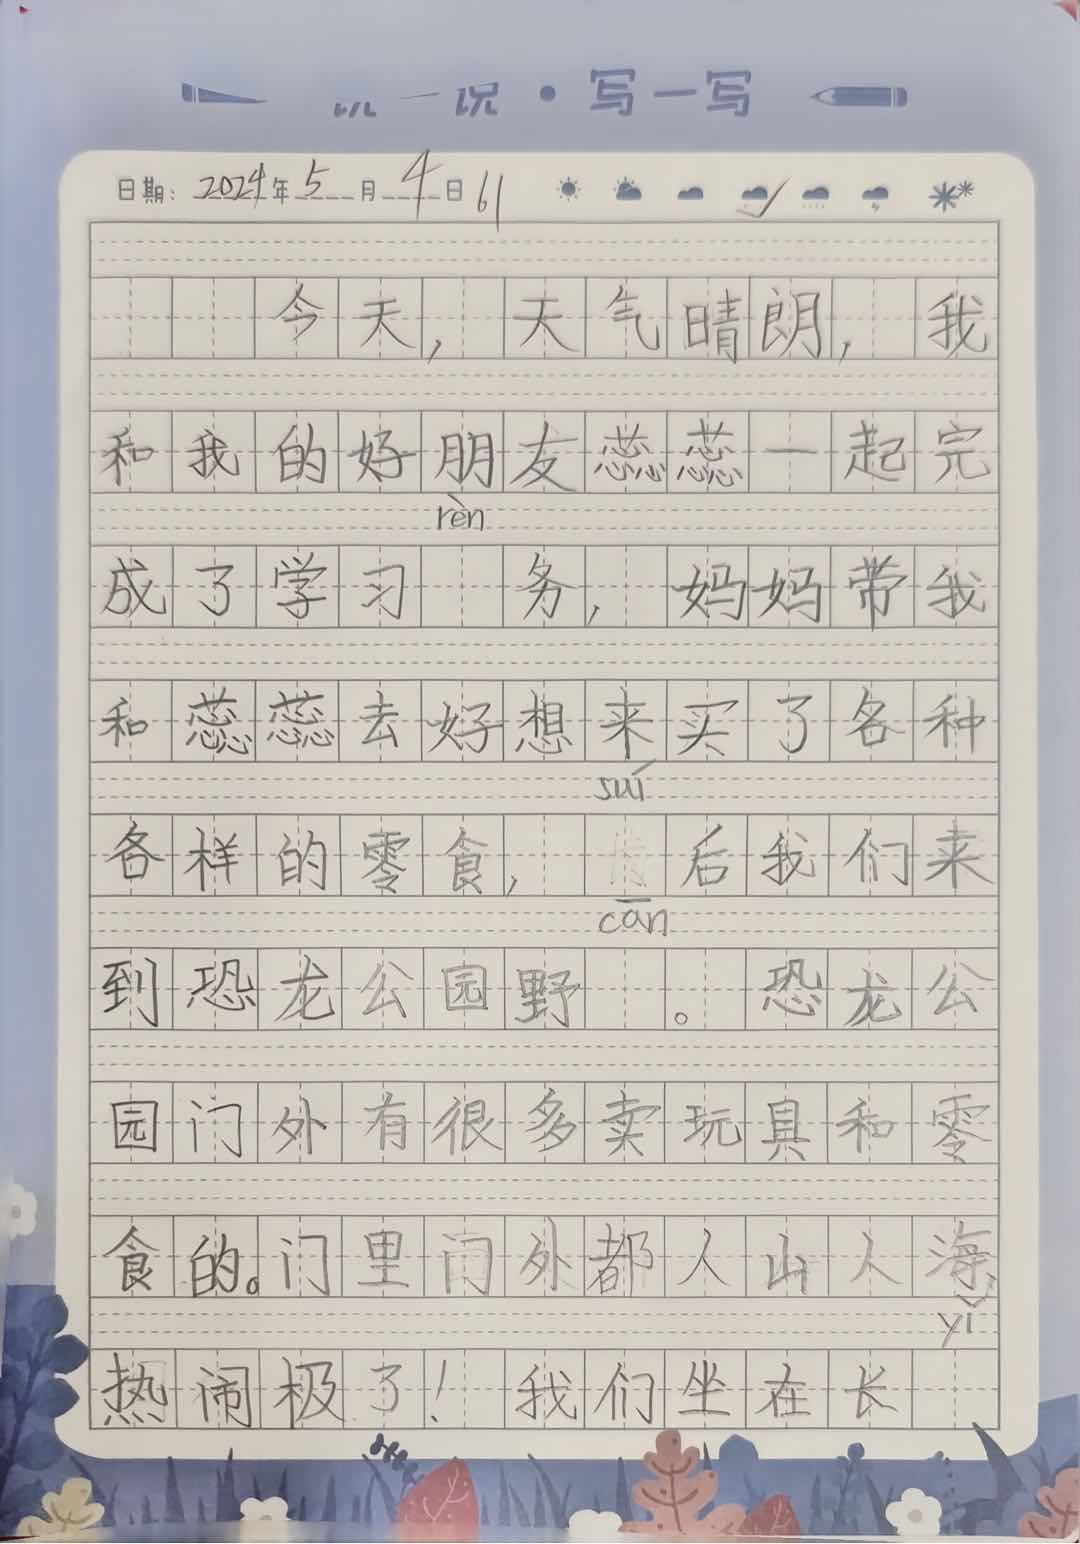 说一说·写一写
日期：2024年5月4日 61
今天，天气晴朗，我
和我的好朋友蕊蕊一起完
rèn
成了学习 务，妈妈带我
和蕊蕊去好想来买了各种
suí
各样的零食， 后我们来
cān
到恐龙公园野 。恐龙公
园门外有很多卖玩具和零
食的。门里门外都人山人海，
yǐ
热闹极了！我们坐在长